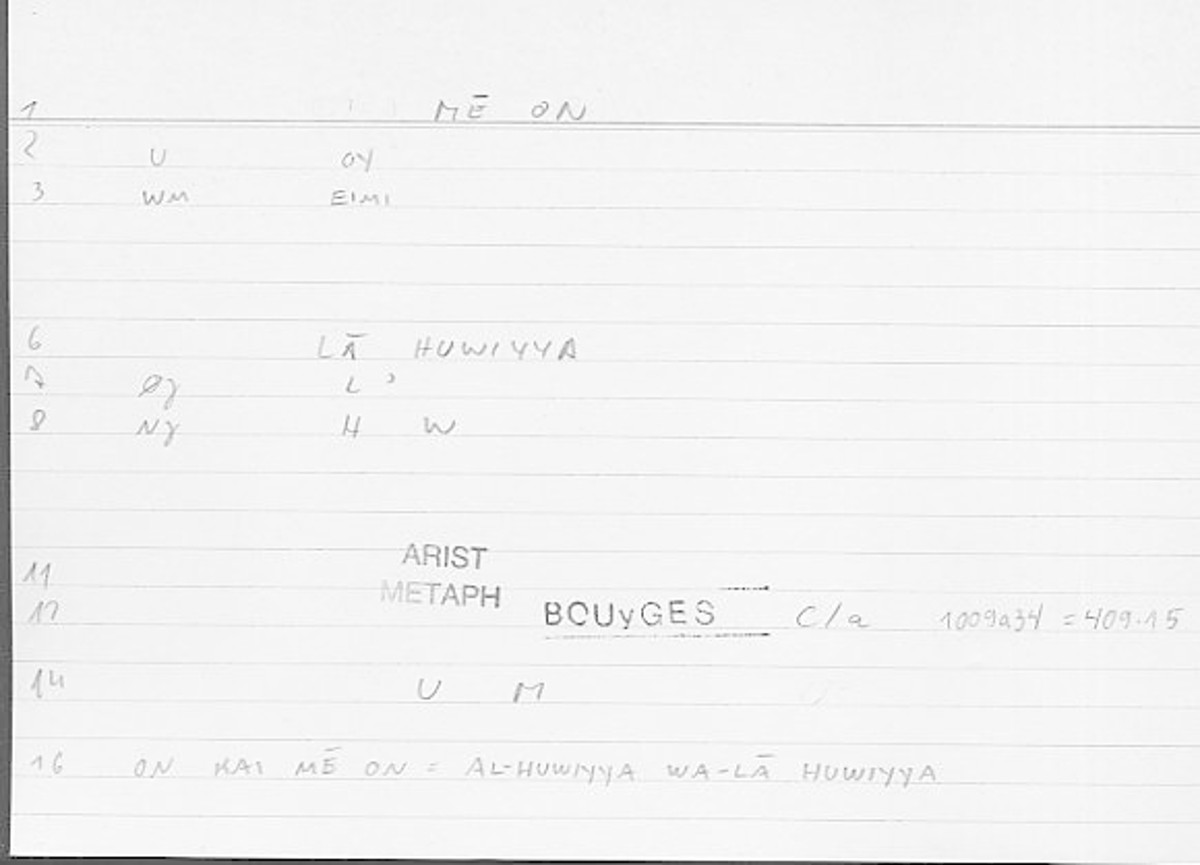 1 MĒ ON
2 U OY
3 WM EIMI
6 LĀ HUWIYYA
7 Øγ L ʾ
8 Nγ H W
ARIST
11 METAPH
12 BOUyGES C/a 1009a34 = 409.15
14 U M
16 ON KAI MĒ ON = AL-HUWIYYA WA-LĀ HUWIYYA